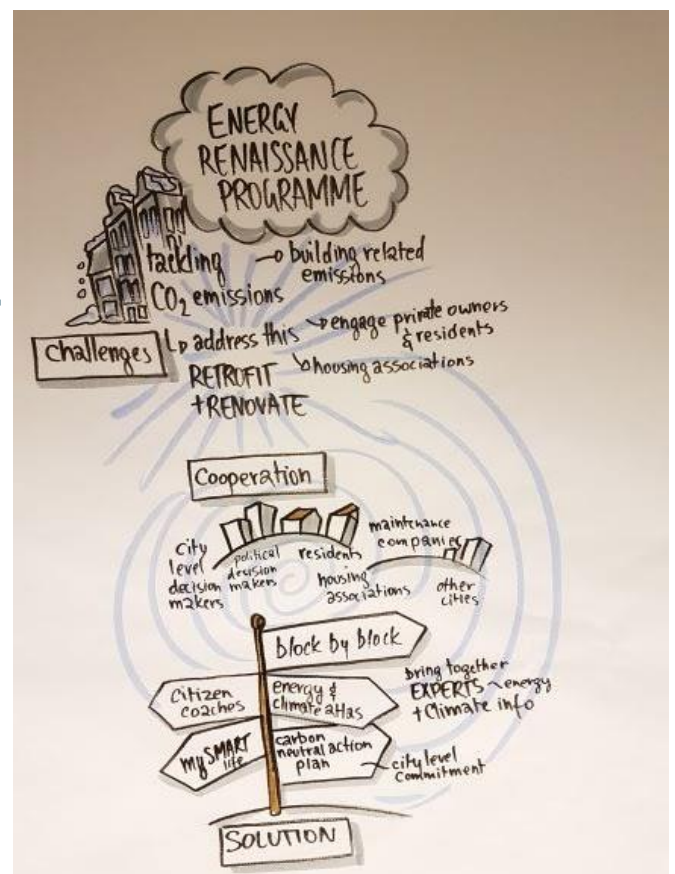 ENERGY
RENAISSANCE
PROGRAMME
tackling
CO₂ emissions
building related
emissions
Challenges
address this
engage private owners
& residents
housing associations
RETROFIT
+ RENOVATE
Cooperation
city
level
decision
makers
political
decision
makers
residents
housing
associations
maintenance
companies
other
cities
block by block
citizen
coaches
energy &
climate atlas
bring together
EXPERTS ~ energy
+ Climate info
mySMART
life
carbon
neutral action
plan
city level
commitment
SOLUTION